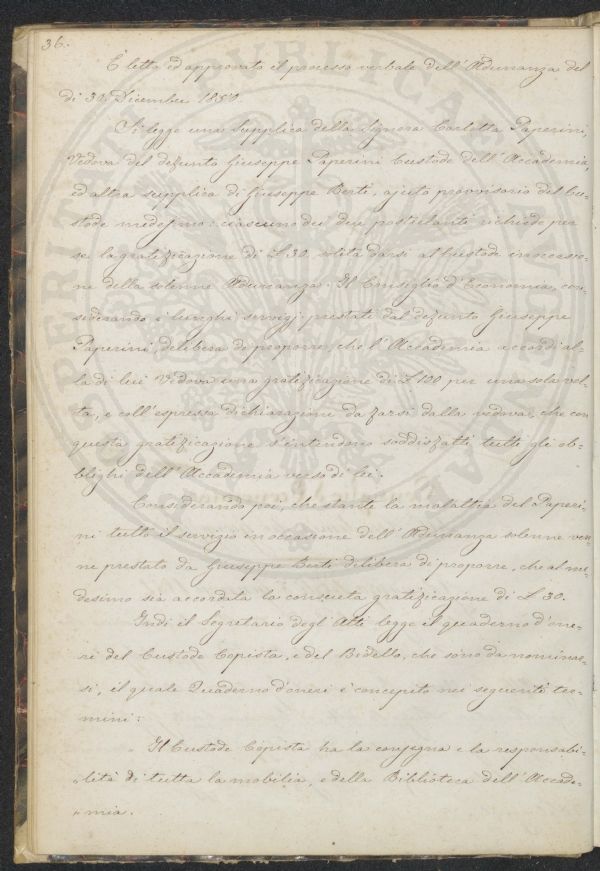 36.
È letto ed approvato il processo verbale dell'Adunanza del
di 30 Dicembre 1850.
Si legge una supplica della Signora Carlotta Paperini,
Vedova del defunto Giuseppe Paperini Custode dell'Accademia,
ed altra supplica di Giuseppe Berti, ajuto provvisorio del Cu-
stode medesimo: ciascuno dei due postulanti richiede per
se la gratificazione di £ 30, solita darsi al Custode in occasio-
ne della solenne Adunanza. Il Consiglio d'Economia, con-
siderando i lunghi servigj prestati dal defunto Giuseppe
Paperini, delibera di proporre, che l'Accademia accordi al-
la di lui Vedova una gratificazione di £ 100 per una sola vol-
ta, e coll'espressa dichiarazione da farsi dalla vedova, che con
questa gratificazione s'intendono soddisfatti tutti gli ob-
blighi dell'Accademia verso di lei.
Considerando poi, che stante la malattia del Paperi-
ni tutto il servizio in occasione dell'Adunanza solenne ven-
ne prestato da Giuseppe Berti delibera di proporre, che al me-
desimo sia accordata la consueta gratificazione di £ 30.
Indi il Segretario degli Atti legge il quaderno d'one-
ri del Custode Copista, e del Bidello, che sono da nominar-
si, il quale Quaderno d'oneri è concepito nei seguenti ter-
mini:
„ Il Custode Copista ha la consegna e la responsabi-
„ lità di tutta la mobilia, e della Biblioteca dell'Accade-
„ mia.